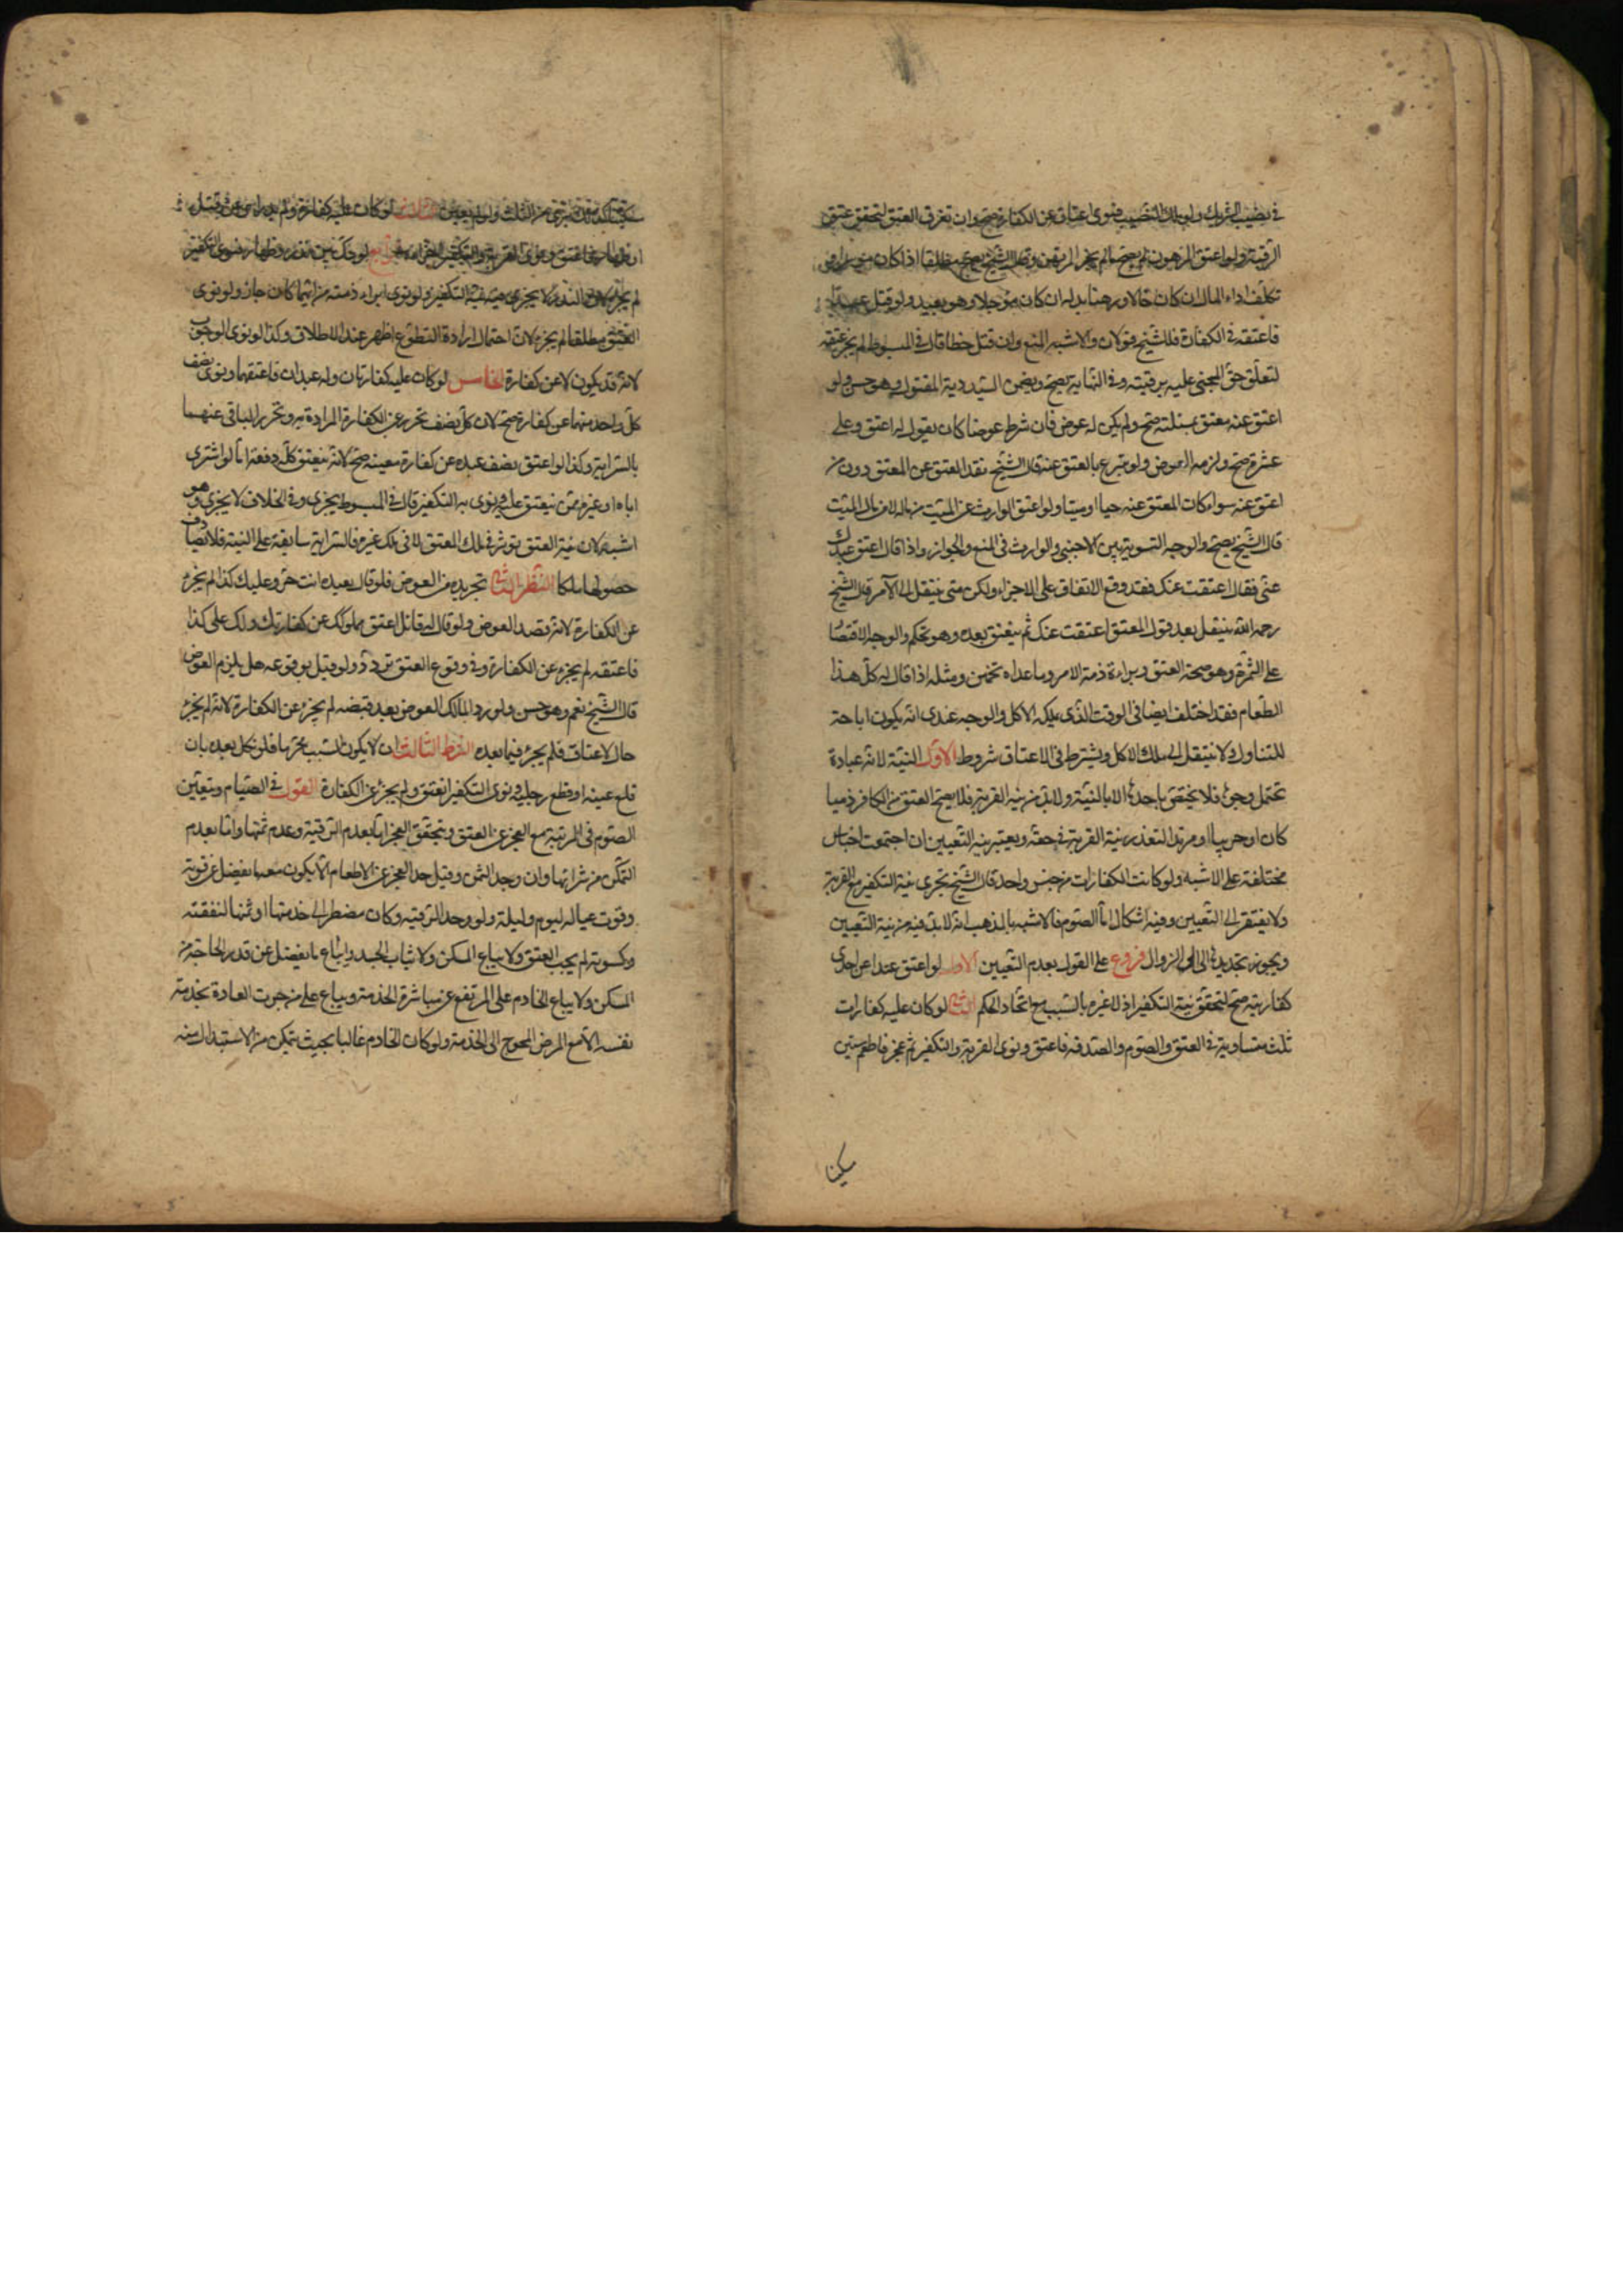 في نصيب الشريك ولو ملك النصيب فنوى اعتاقه عن الكفارة صح وان تفرق العتق لتحقق عتق
الرقبة ولو اعتق المرهون لم يصح ما لم يجز المرتهن وقال الشيخ يصح مطلقا اذا كان موسرا و
تكلف اداء المال ان كان حالا ورهنا بدله ان كان مؤجلا وهو بعيد ولو قتل عمدا
فاعتقه في الكفارة فللشيخ قولان والاشبه المنع وان قتل خطا قال في المبسوط لم يجز عتقه
لتعلق حق المجني عليه برقبته وفي النهاية يصح ويضمن السيد دية المقتول وهو حسن ولو
اعتق عنه معتق بمسئلته صح ولم يكن له عوض فان شرط عوضا كان يقول له اعتق وعلي
عشرة صح ولزمه العوض ولو تبرع بالعتق عنه قال الشيخ نفذ العتق عن المعتق دون من
اعتق عنه سواء كان المعتق عنه حيا او ميتا ولو اعتق الوارث عن الميت من ماله لا من مال الميت
قال الشيخ يصح والوجه التسوية بين الاجنبي والوارث في المنع والجواز واذا قال اعتق عبدك
عني فقال اعتقت عنك فقد وقع الاتفاق على الاجزاء ولكن متى ينتقل الى الآمر قال الشيخ
رحمه الله ينتقل بعد قول المعتق اعتقت عنك ثم ينعتق بعده وهو تحكم والوجه الاقتصا
على الثمرة وهو صحة العتق وبراءة ذمة الامر وما عداه تخمين ومثله اذا قال له كل هذا
الطعام فقد اختلف ايضا في الوقت الذي يملكه الاكل والوجه عندي انه يكون اباحة
للتناول ولا ينتقل الى ملك الاكل ويشترط في الاعتاق شروط الاول النية لانه عبادة
تحتمل وجوها فلا يختص باحدها الا بالنية ولا بد من نية القربة فلا يصح العتق من الكافر ذميا
كان او حربيا او مرتدا لتعذر نية القربة في حقه ويعتبر نية التعيين ان اجتمعت اجناس
مختلفة على الاشبه ولو كانت الكفارات من جنس واحد قال الشيخ تجزي نية التكفير مع القربة
ولا يفتقر الى التعيين وفيه اشكال اما الصوم فالاشبه بالمذهب انه لا بد فيه من نية التعيين
ويجوز تجديدها الى الزوال فروع على القول بعدم التعيين الاول لو اعتق عبدا عن احدى
كفارتيه صح لتحقق نية التكفير اذ لا غيره بالسبب مع اتحاد الحكم الثاني لو كان عليه كفارات
ثلث متساوية في العتق والصوم والصدقه فاعتق ونوى القربة والتكفير ثم عجز فاطعم ستين
لو كان عليه كفارة ولم يدر اهي عن قتل
لم يجز
العتق مطلقا لم يجزه لان احتمال ارادة التطوع اظهر عند الاطلاق وكذا لو نوى الوجوب
لانه قد يكون لا عن كفارة الخامس لو كان عليه كفارتان وله عبدان فاعتقهما ونوى نصف
كل واحد منهما عن كفارة صح لان كل نصف تحرر عن الكفارة المرادة به وتحرر الباقي عنهما
بالسراية وكذا لو اعتق نصف عبده عن كفارة معينه صح لانه ينعتق كله دفعة اما لو اشترى
اباه او غيره ممن ينعتق عليه ونوى به التكفير قال في المبسوط يجزي وفي الخلاف لا يجزي وهو
اشبه لان نية العتق تؤثر في ملك المعتق لا في ملك غيره فالسراية سابقة على النية فلا تصادف
حصولها ملكا الشرط الثاني تجريده من العوض فلو قال لعبده انت حر وعليك كذا لم يجزه
عن الكفارة لانه قصد العوض ولو قال له قائل اعتق مملوكك عن كفارتك ولك علي كذا
فاعتقه لم يجزه عن الكفارة وفي وقوع العتق تردد ولو قيل بوقوعه هل يلزم العوض
قال الشيخ نعم وهو حسن ولو رد المالك العوض بعد قبضه لم يجزه عن الكفارة لانه لم يجزه
حال الاعتاق فلم يجزه فيما بعده الشرط الثالث ان لا يكون السبب محرما فلو نكل بعبده بان
قلع عينه او قطع رجليه ونوى التكفير انعتق ولم يجز عن الكفارة القول في الصيام ويتعين
الصوم في المرتبة مع العجز عن العتق ويتحقق العجز اما بعدم الرقبة وعدم ثمنها واما بعدم
التمكن من شرائها وان وجد الثمن وقيل حد العجز عن الاطعام الا يكون معه ما يفضل عن قوته
وقوت عياله ليوم وليلة ولو وجد الرقبه وكان مضطرا الى خدمتها او ثمنها لنفقته
وكسوته لم يجب العتق ولا يباع المسكن ولا ثياب الجسد ويباع ما يفضل عن قدر الحاجة من
المسكن ولا يباع الخادم على المرتفع عن مباشرة الخدمة ويباع على من جرت العادة بخدمته
نفسه الا مع المرض المحوج الى الخدمة ولو كان الخادم غاليا بحيث يتمكن من الاستبدال منه